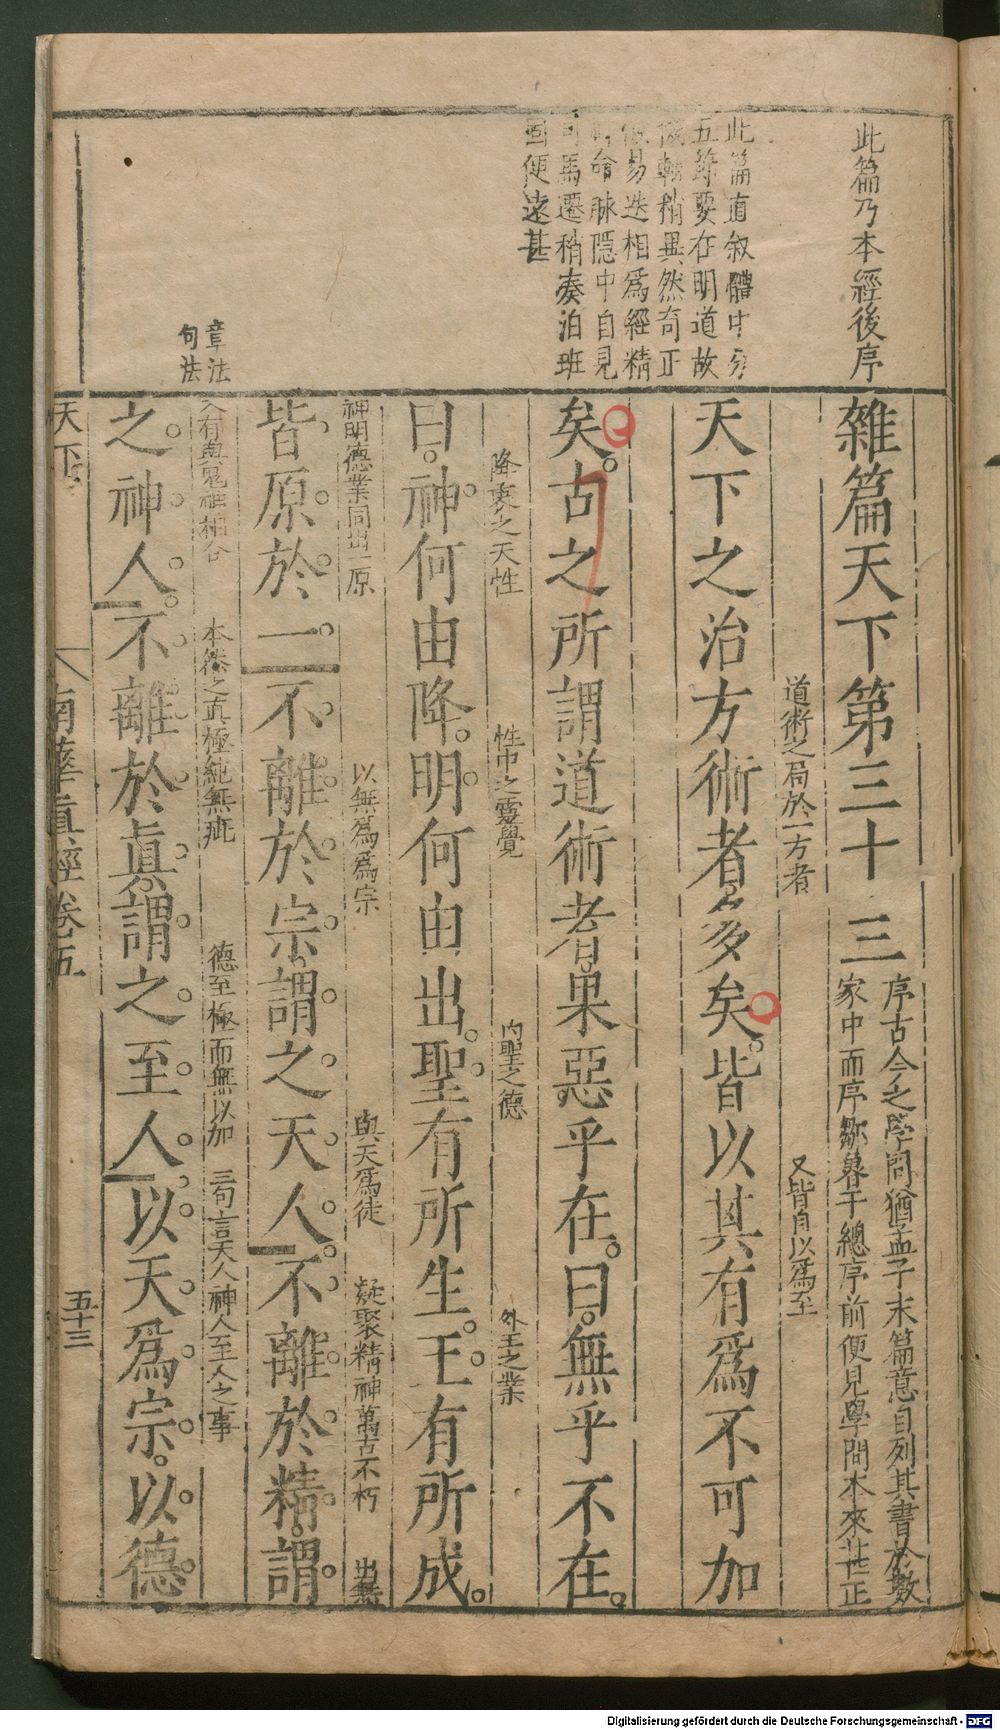 此篇乃本經後序
此篇直叙體中分
五節要在明道故
轉稍異然奇正
易迭相爲經精
命脉隱中自見
司馬遷稍奏泊班
固便遠甚
章法
句法
雜篇天下第三十三
序古今之學問猶孟子末篇意自列其書於數
家中而序鄒魯于總序前便見學問本來甚正
道術之局於一方者
又皆自以爲至
天下之治方術者多矣。皆以其有爲不可加
矣。古之所謂道術者。果惡乎在。曰。無乎不在。
降衷之天性
性中之靈覺
內聖之德
外王之業
曰。神何由降。明何由出。聖有所生。王有所成。
神明德業同出一原
以無爲爲宗
與天爲徒
凝聚精神萬古不朽
出無
皆原於一不離於宗。謂之天人。不離於精。謂
入有與鬼神相合
本然之真極純無疵
德至極而無以加
三句言天人神人至人之事
之神人。不離於眞。謂之至人。以天爲宗。以德
天下
南華真經卷五
五十三
Digitalisierung gefördert durch die Deutsche Forschungsgemeinschaft - DFG